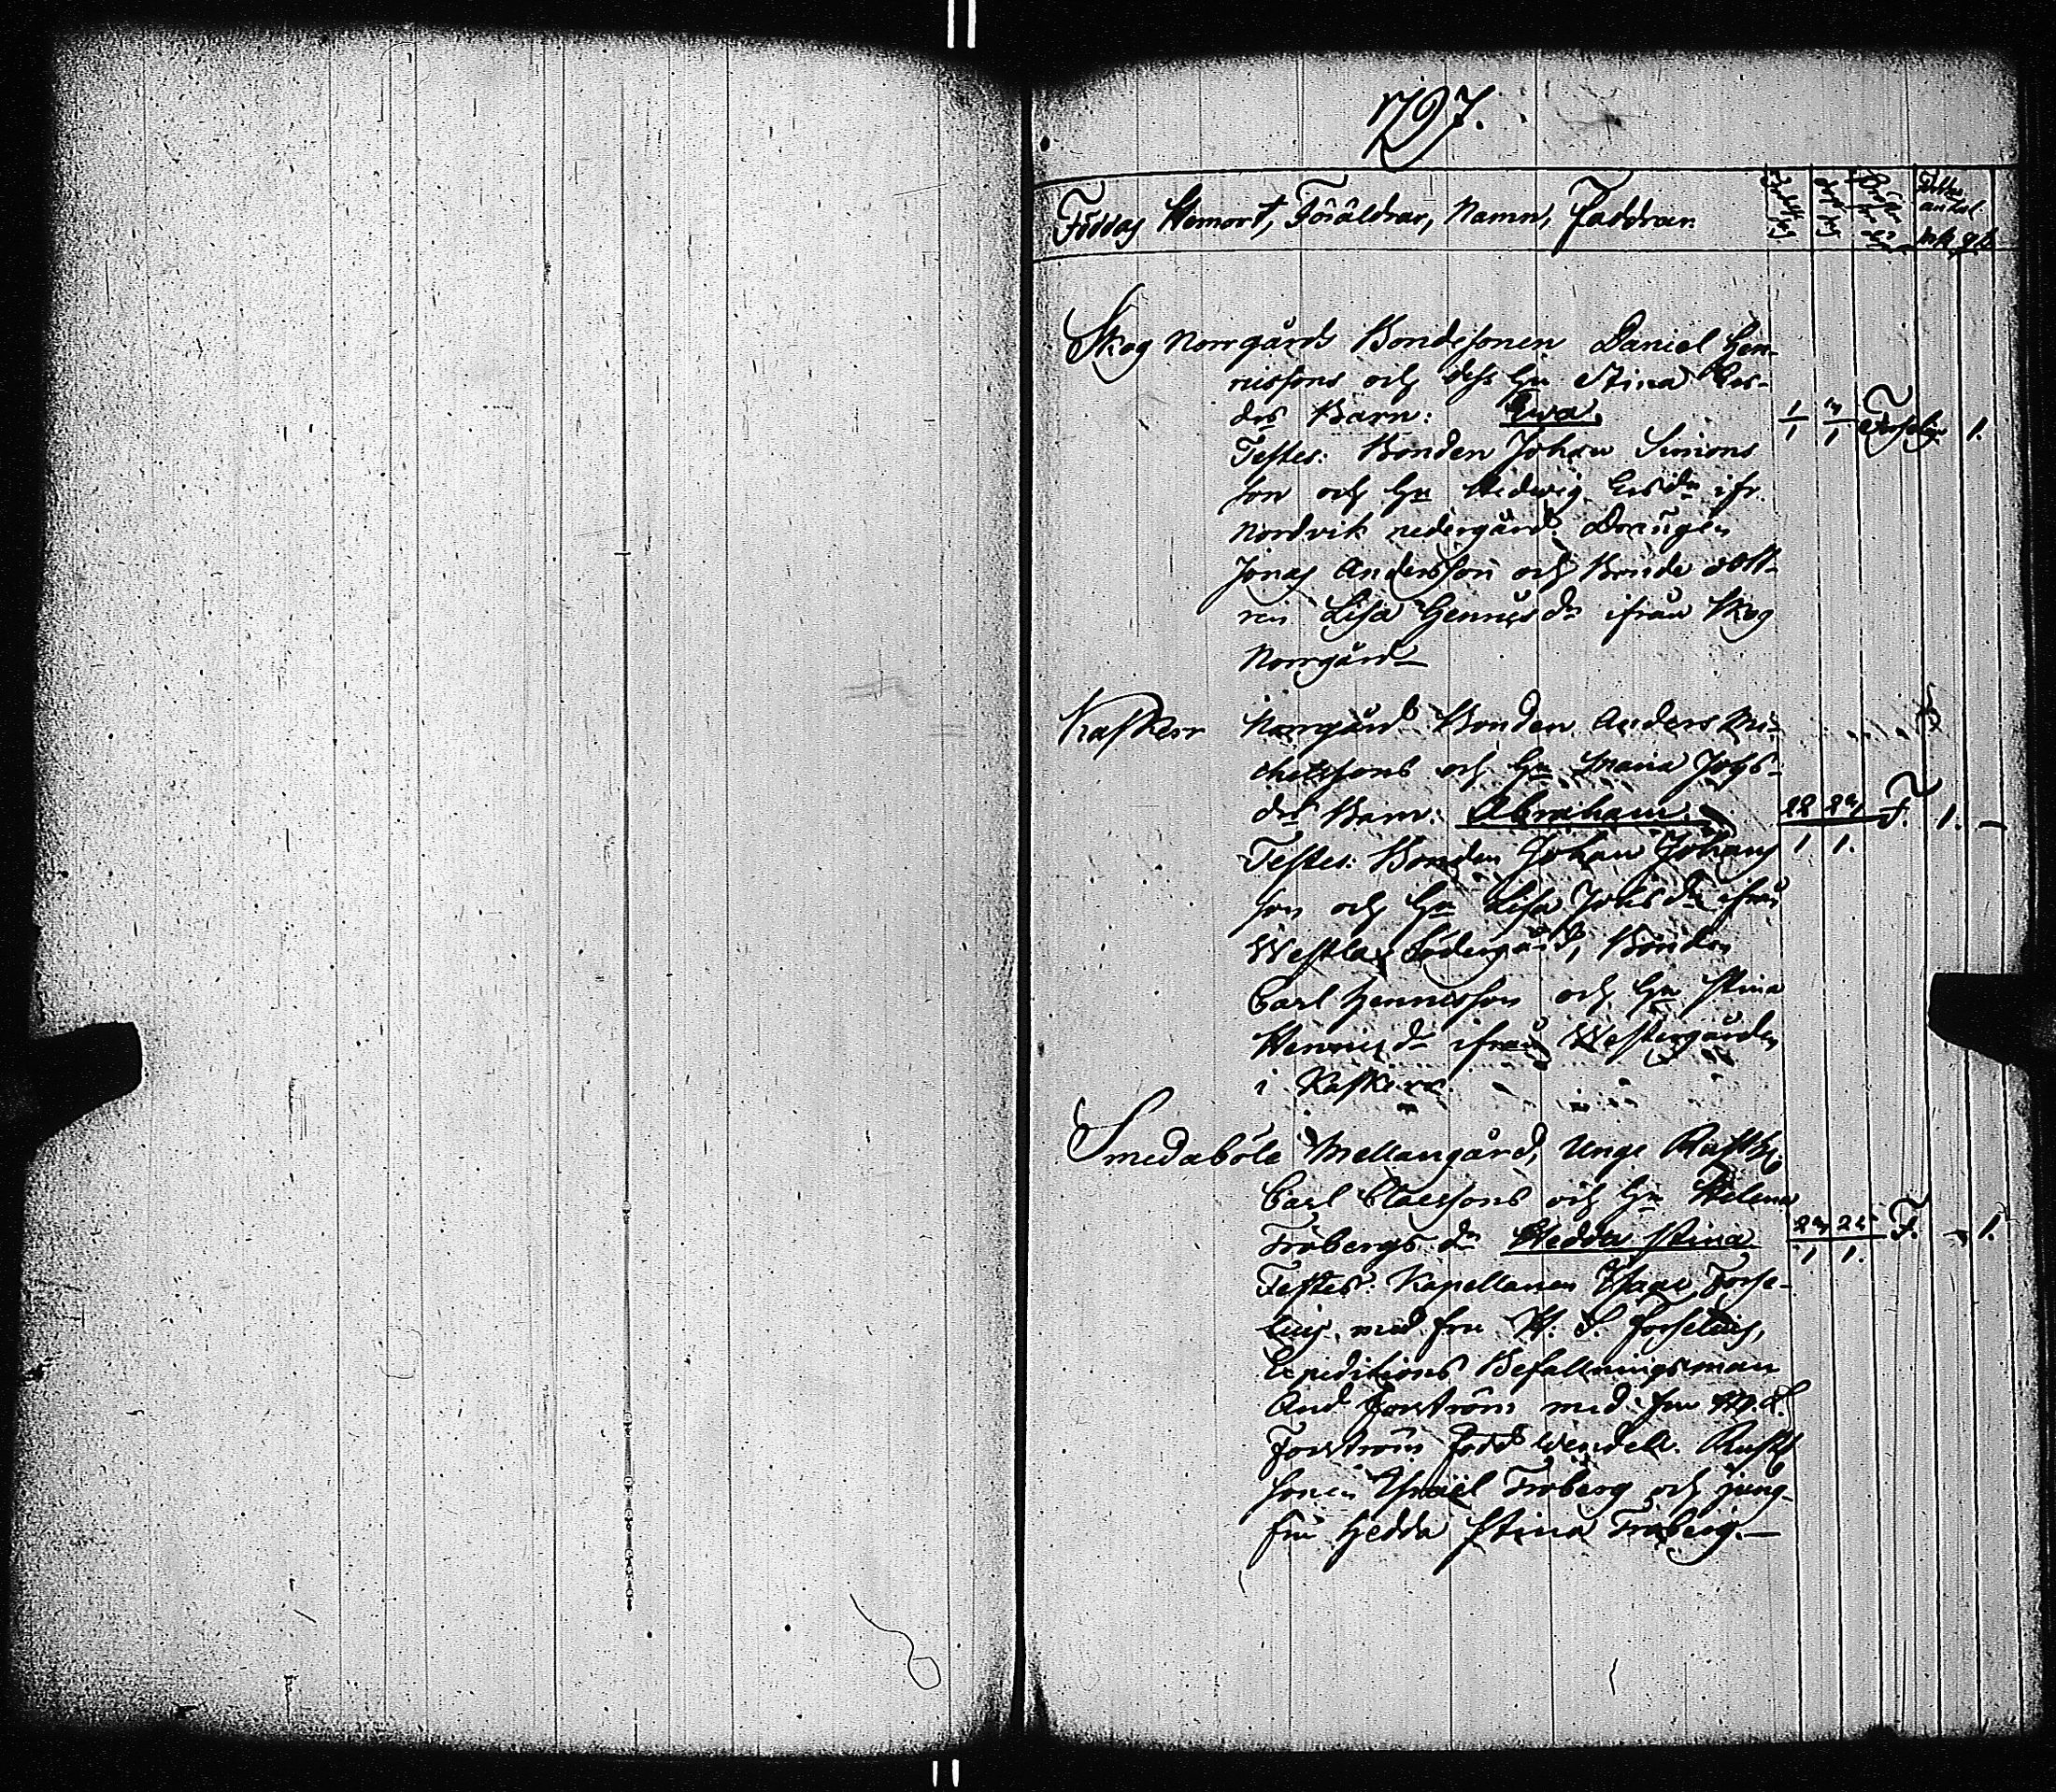 1797.
Föddas Hemort, Föräldrar, Namn, Faddrar.
antal
mk qk
Skog Norrgårds Bondesonen Daniel Hen-
ricssons och dess Hu Stina Ers-
drs Barn: Ewa. 1/1 3/1 Forselius 1.
Testes: Bonden Johan Simons
son och Hu Hedwig Ersdr ifr.
Nordvik nedergård Drängen
Jonas Andersson och Bonde dott-
ren Lisa Henricsdr ifrån Skog
Norrgård
Kasker Norrgårds Bonden Anders Mi-
chelssons och Hu Maria Johs-
drs Barn: Abraham. 22/1 24/1. F. 1. -
Testes: Bonden Johan Johans
son och Hu Lisa Johsdr ifrån
Westlax Södergård, Bonden
Carl Henricsson och Hu Stina
Henricsdr ifrån Westergården
i Kasker
Smedaböle Mellangård, Unge Rusth:
Carl Claessons och Hu Helena
Frobergs dr Hedda Stina 24/1 25/1. F. - 1.
Testes: Kapellanen Isaac Forse-
lius, med fru H. S. Forselius,
Expeditions Befallningsman
And Forström med fru M. L.
Forström född Wendell. Rusth
sonen Israel Froberg och jung-
fru Hedda Stina Froberg.—